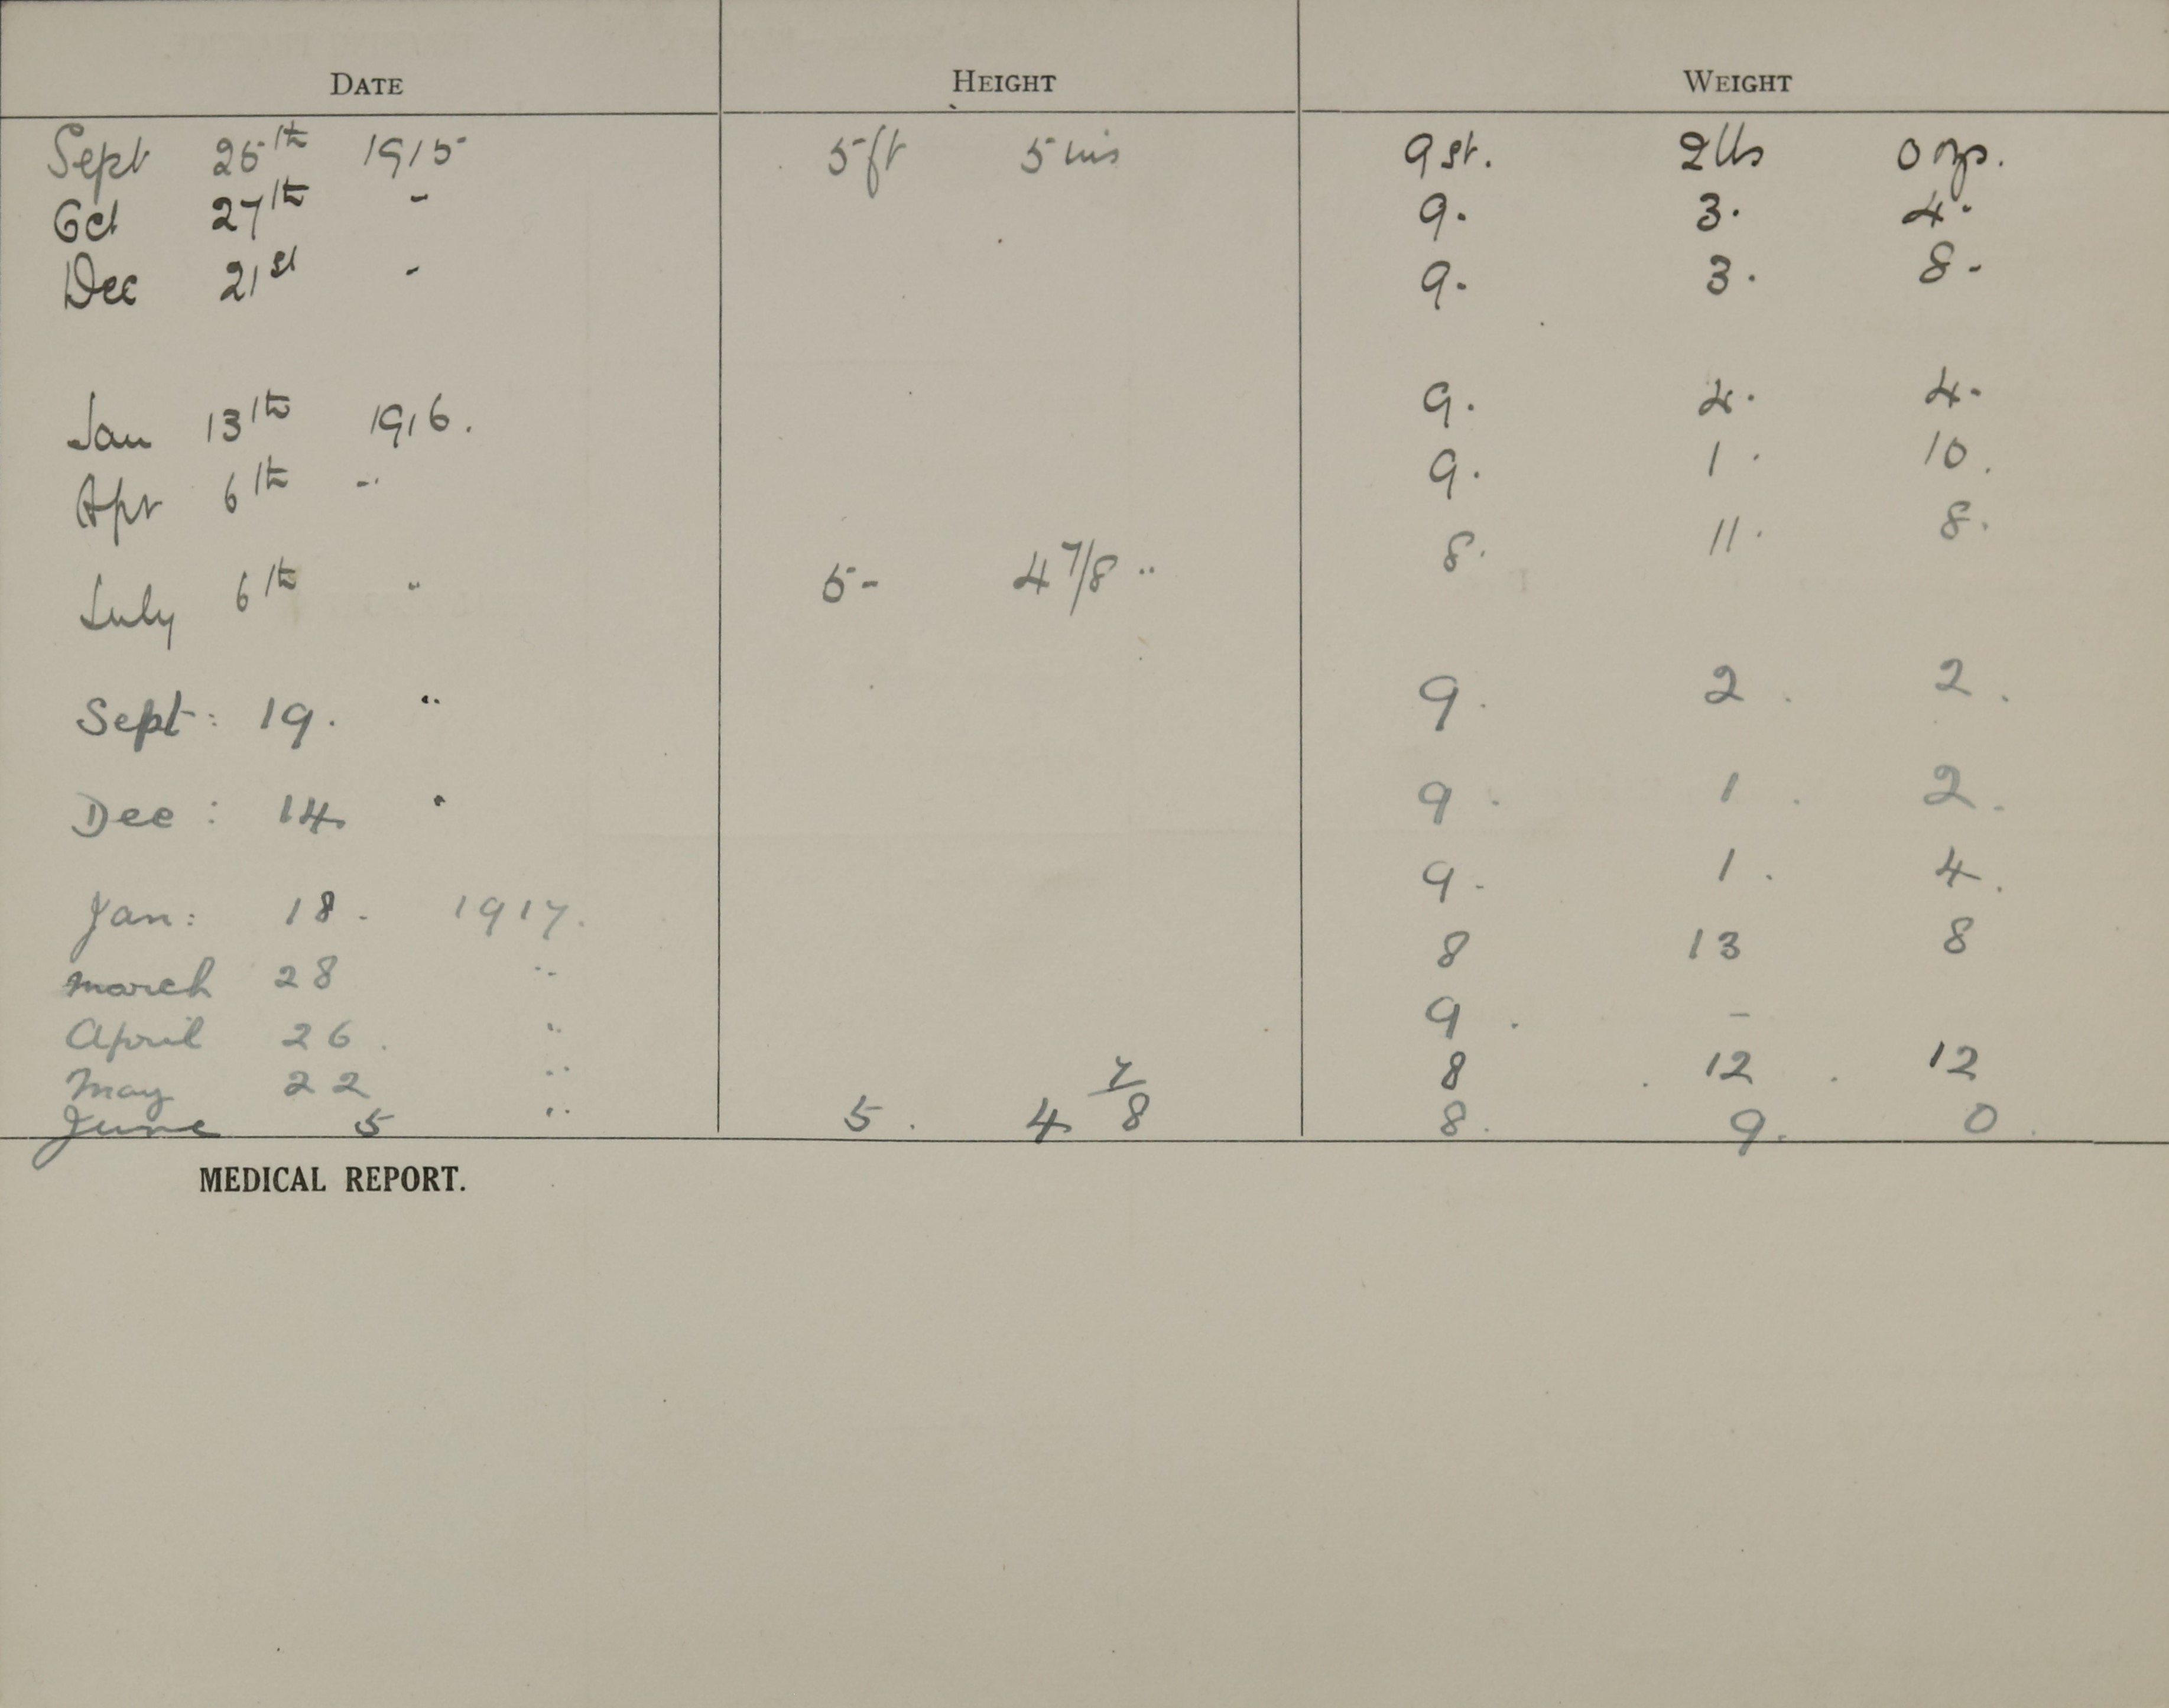 DATE HEIGHT WEIGHT
Sept 25th 1915 5ft 5 ins 9 st. 2 lbs 0 ozs.
Oct 27th - 9. 3. 4.
Dec 21st - 9. 3. 8-
Jan 13th 1916. 9. 4. 4.
Apr 6th -. 9. 1. 10.
July 6th " 5- 4 7/8 " 8. 11. 8.
Sept: 19. " 9. 2. 2.
Dec: 14 " 9. 1. 2.
Jan: 18. 1917. 9. 1. 4.
March 28 " 8 13 8
April 26. " 9. -
May 22 " 8. 12. 12
June 5 " 5. 4 7/8 8. 9. 0.
MEDICAL REPORT.